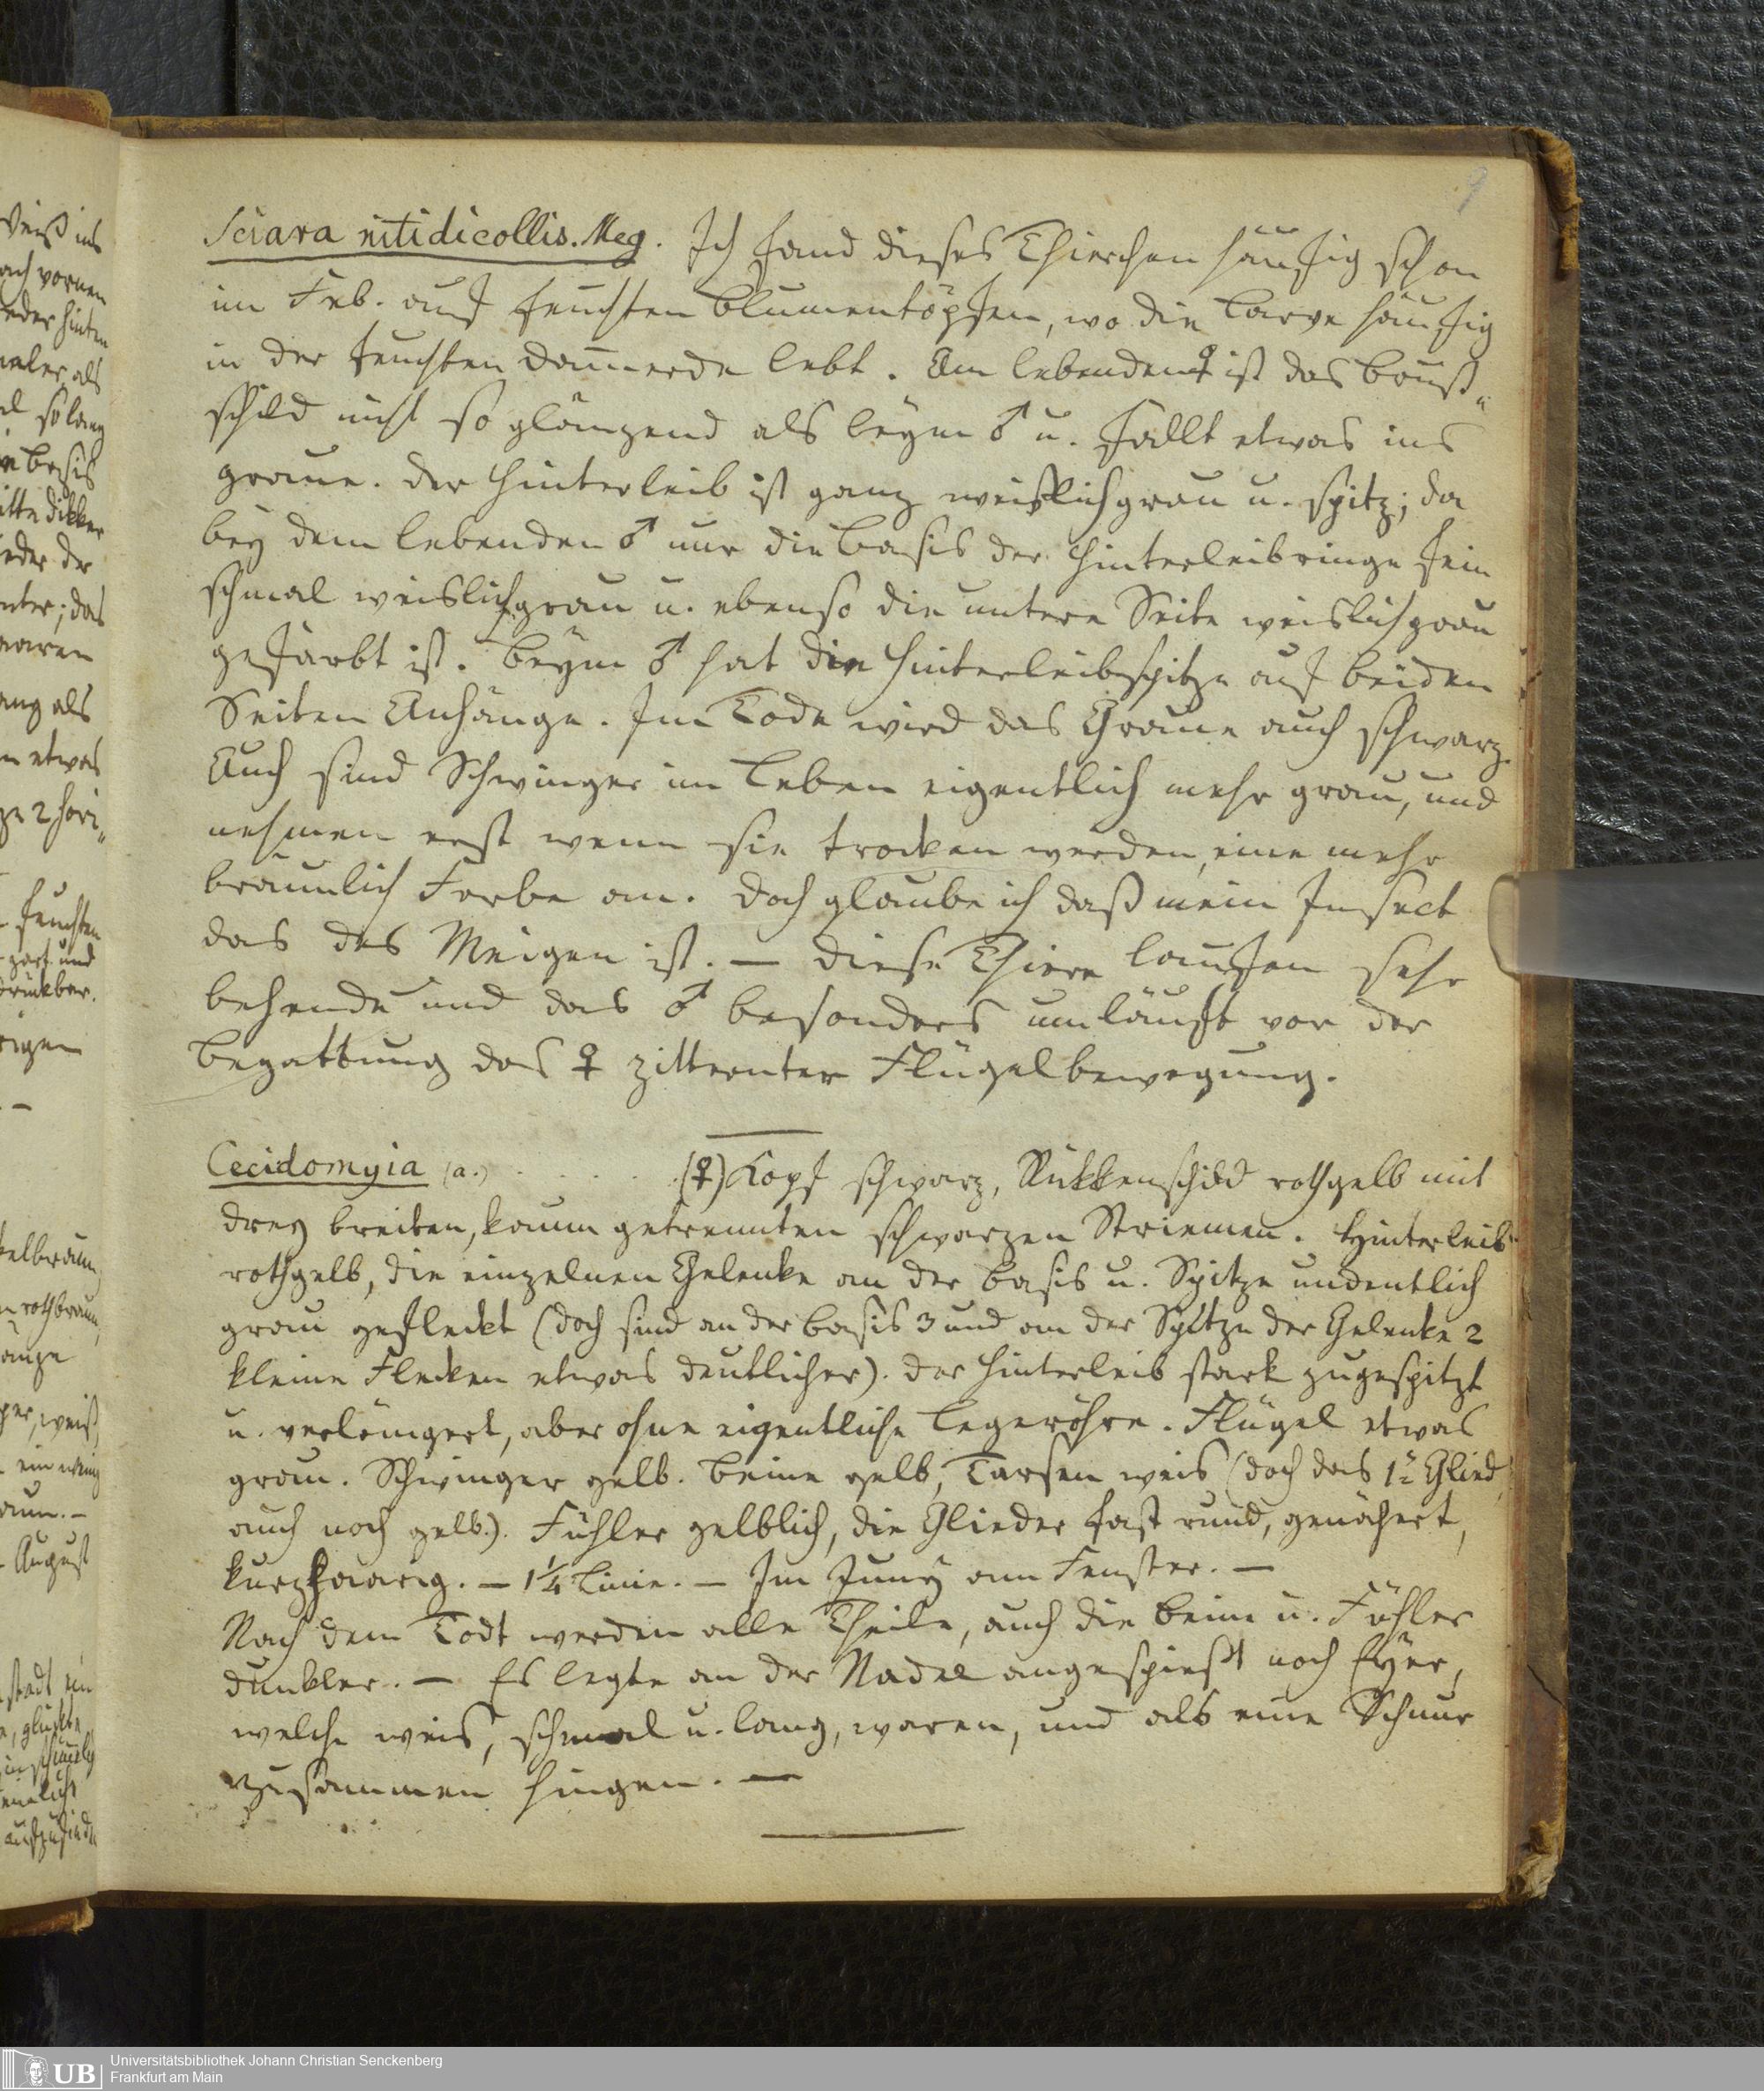 9
Sciara nitidicollis. Meg. Ich fand dieses Thierchen häufig schon
im Feb. auf feuchten Blumentöpfen, wo die Larve häufig
in der feuchten Dam̄erde lebt. Am lebenden ♀ ist das Brust„
schild nicht so glänzend als beym ♂ u. fällt etwas ins
graue. Der Hinterleib ist ganz weißlichgrau u. spitz; da
bey dem lebenden ♂ nur die Basis der Hinterleibringe fein
schmal weislichgrau u. ebenso die untere Seite weislichgrau
gefärbt ist. Beym ♂ hat die Hinterleibspitze auf beiden
Seiten Anhänge. Im Tode wird das Graue auch schwarz.
Auch sind Schwinger im Leben eigentlich mehr grau, und
nehmen erst wenn sie trocken werden, eine mehr
bräunlich Farbe an. Doch glaube ich daß mein Insect
das des Meigen ist. — Diese Thiere laufen sehr
behende und das ♂ besonders umläuft vor der
Begattung das ♀ zitternter Flügelbewegung.
Cecidomyia (a.) . . . . (♀) Kopf schwarz, Rükkenschild rothgelb mit
drey breiten, kaum getrennten schwarzen Striemen. Hinterleib
rothgelb, die einzelnen Gelenke an der Basis u. Spitze undeutlich
grau gefleckt (doch sind an der Basis 3 und an der Spitze der Gelenke 2
kleine Flecken etwas deutlicher). Der Hinterleib stark zugespitzt
u. verlängert, aber ohne eigentliche Legeröhre. Flügel etwas
grau. Schwinger gelb. Beine gelb, Tarsen weis (doch das 1te Glied
auch noch gelb.). Fühler gelblich, die Glieder fast rund, genähert,
kurzhaarig. — 1¼ Linie. — Im Juny am Fenster. —
Nach dem Todt werden alle Theile, auch die Beine u. Fühler
dunkler. — Es legte an der Nadel angespießt noch Eyer,
welche weis, schmal u. lang, waren, und als eine Schnur
zusammen hingen. —
Universitätsbibliothek Johann Christian Senckenberg
Frankfurt am Main
UB